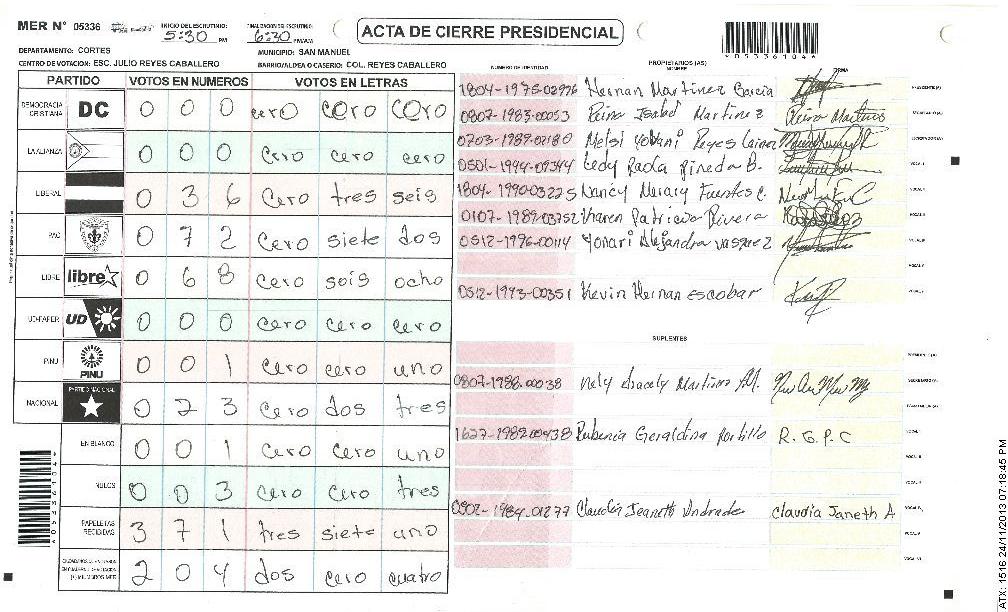 MER N° 05336 INICIO DEL ESCRUTINIO: 5:30 PM FINALIZACION DEL ESCRUTINIO: 6:30 PM/AM ACTA DE CIERRE PRESIDENCIAL *05336104*
DEPARTAMENTO: CORTES MUNICIPIO: SAN MANUEL
CENTRO DE VOTACION: ESC. JULIO REYES CABALLERO BARRIO/ALDEA O CASERIO: COL. REYES CABALLERO
PARTIDO VOTOS EN NUMEROS VOTOS EN LETRAS
DEMOCRACIA CRISTIANA DC 0 0 0 cero cero cero
LA ALIANZA 0 0 0 cero cero cero
LIBERAL 0 3 6 cero tres seis
PAC 0 7 2 cero siete dos
LIBRE libre 0 6 8 cero seis ocho
UD-FAPER UD 0 0 0 cero cero cero
PINU PINU 0 0 1 cero cero uno
NACIONAL PARTIDO NACIONAL 0 2 3 cero dos tres
EN BLANCO 0 0 1 cero cero uno
NULOS 0 0 3 cero cero tres
PAPELETAS RECIBIDAS 3 7 1 tres siete uno
2 0 4 dos cero cuatro
NUMERO DE IDENTIDAD PROPIETARIOS (AS) NOMBRE FIRMA
1804-1975-02976 Hernan Martinez Garcia PRESIDENTE(A)
0807-1983-00053 Reina Isabel Martinez Reina Martinez SECRETARIO(A)
0703-1989-02180 Melsi Yobani Reyes Lainez ESCRUTADOR(A)
0501-1994-09344 Ledy Paola Pineda B. VOCAL I
1804-1990-03225 Nancy Merary Fuentes C. VOCAL II
0107-1989-03752 Karen Patricia Rivera VOCAL III
0512-1996-00114 Yonari Alejandra Vasquez VOCAL IV
VOCAL V
0512-1993-00351 Kevin Hernan Escobar
SUPLENTES
PRESIDENTE(A)
0807-1988-00038 Nely Aracely Martinez M. SECRETARIO(A)
ESCRUTADOR(A)
1627-1989-00438 Rubenia Geraldina Portillo R. G. P. C VOCAL I
VOCAL II
VOCAL III
0502-1984-01277 Claudia Jeaneth Andrade Claudia Janeth A VOCAL IV
VOCAL V
VOCAL VI
*05336104*
ATX: 1516 24/11/2013 07:18:45 PM